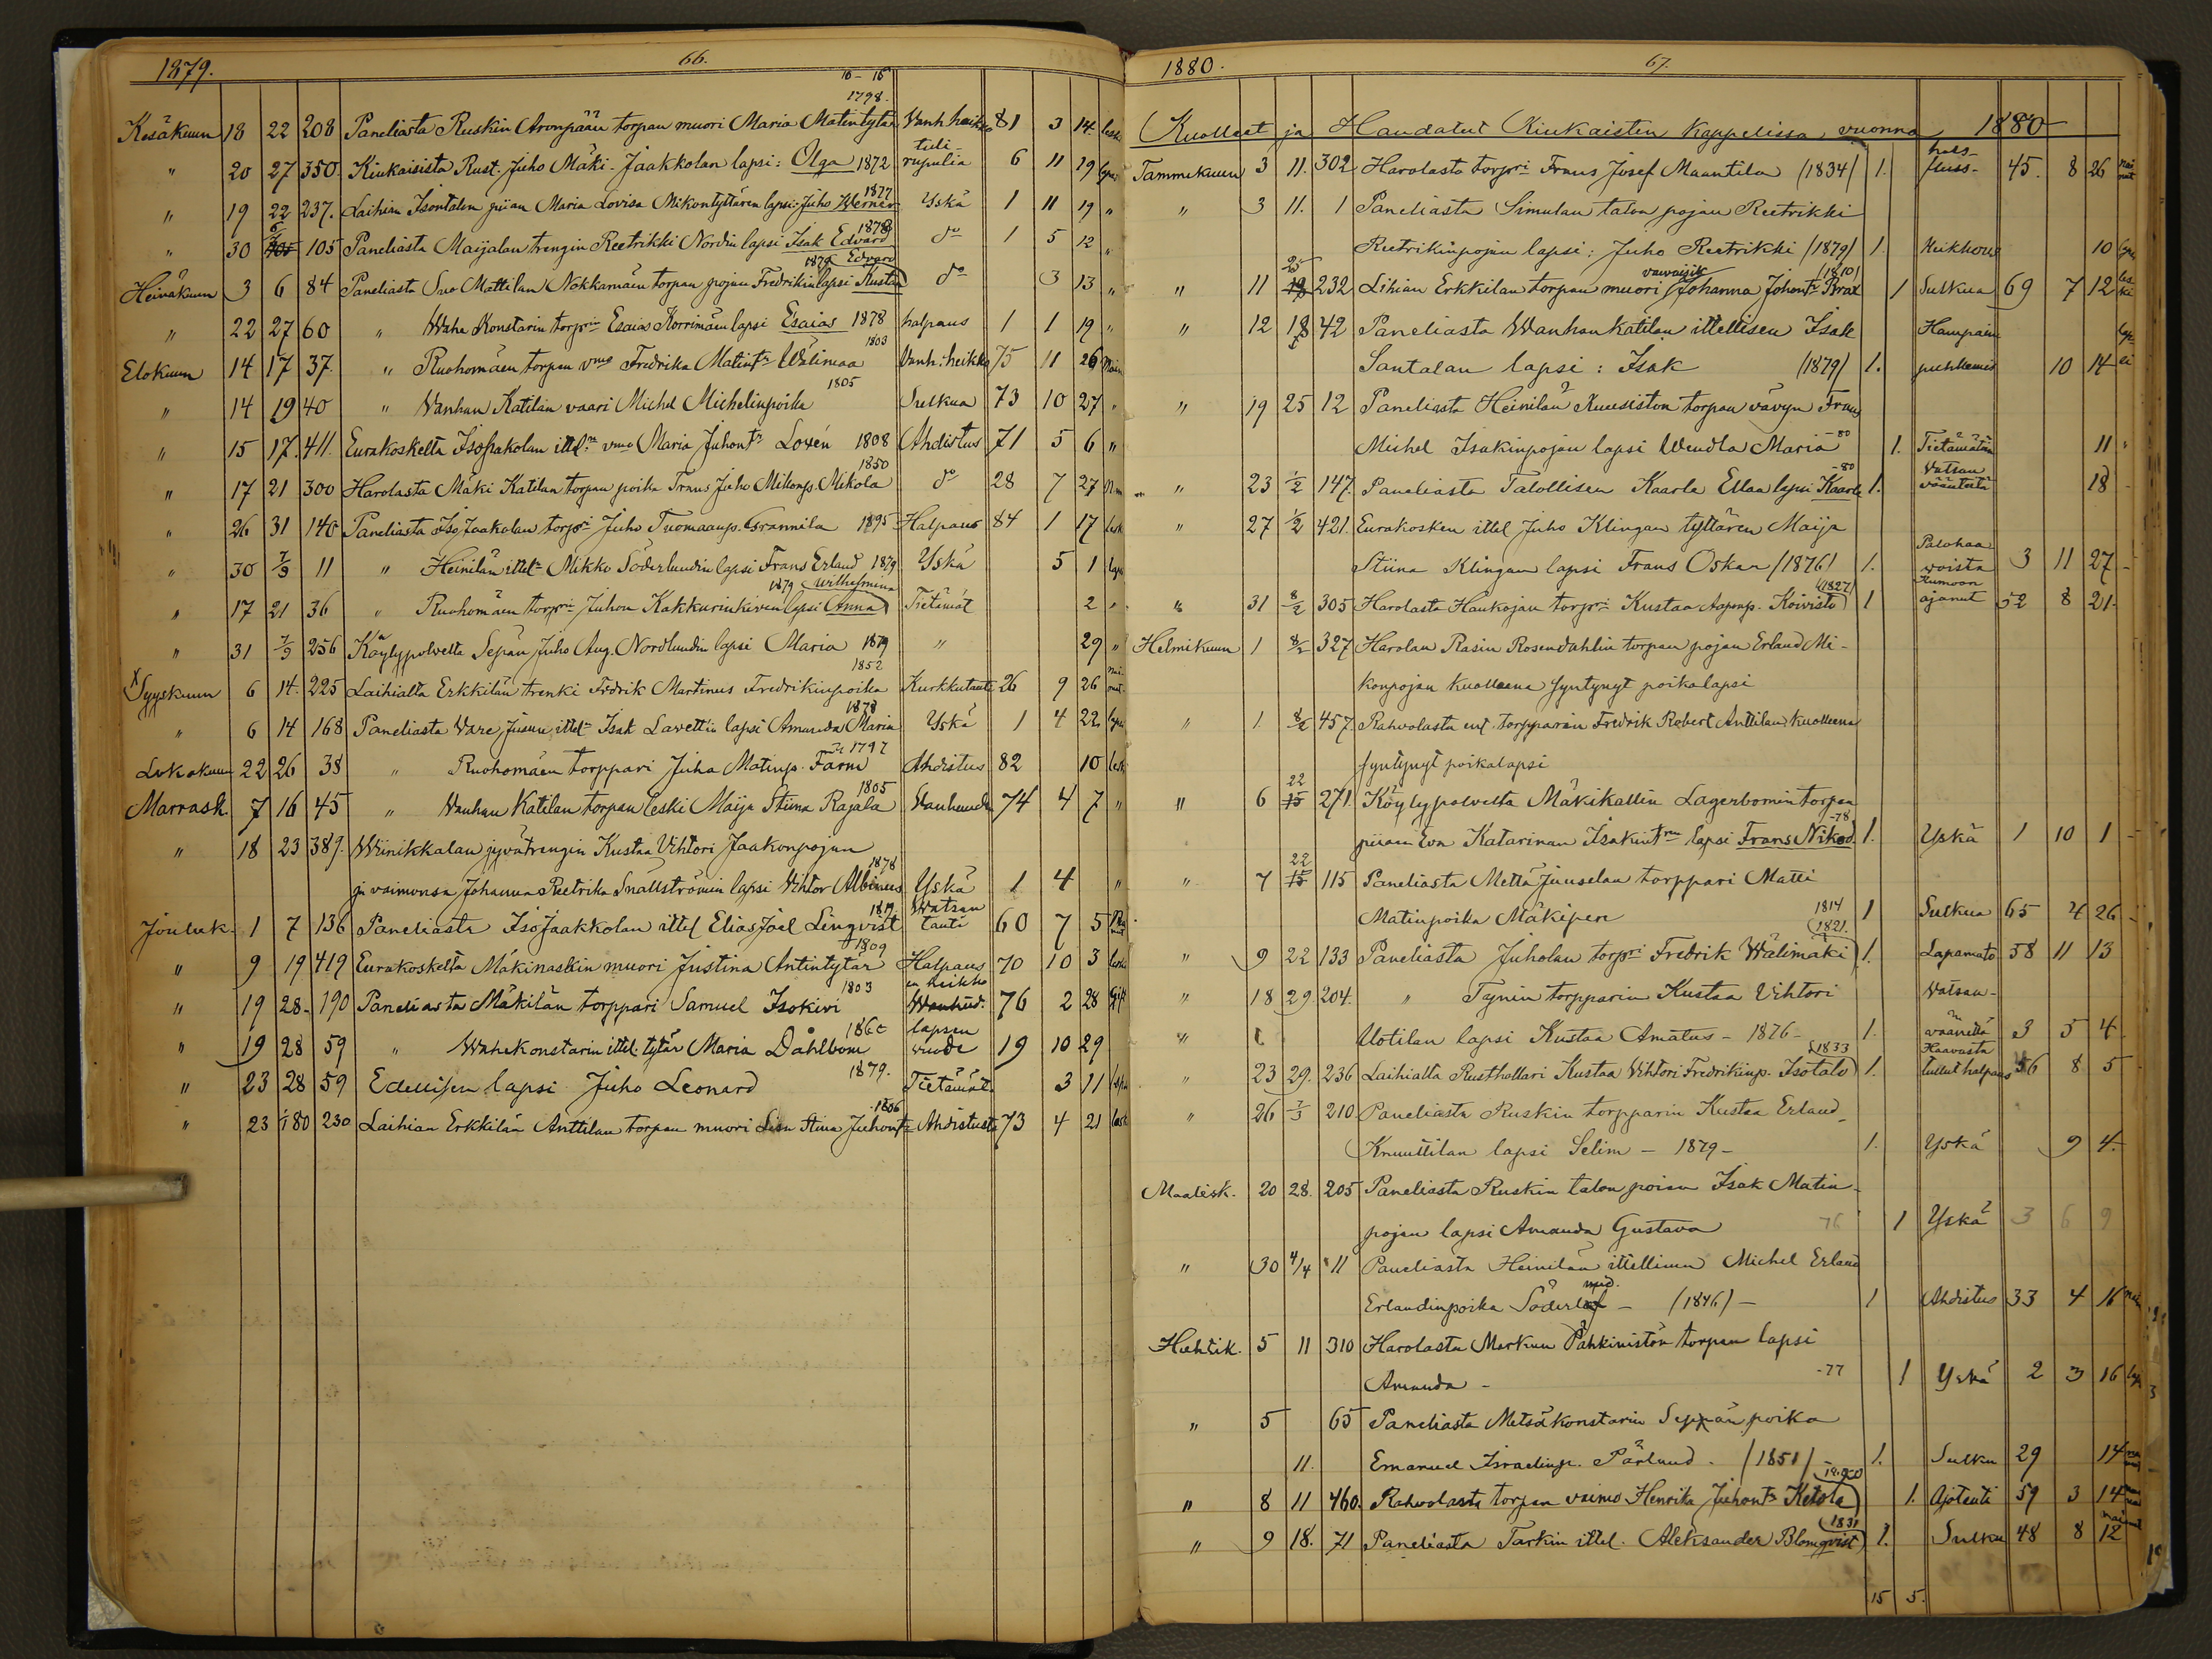 1879. 66.
16 - 15
1798.
Kesäkuun 18 22 208 Paneliasta Ruskin Aronpään torpan muori Maria Matintytär Vanh. heikko 81 3 14 leski
" 20 27 350. Kiukaisista Rust. Juho Mäki-Jaakkolan lapsi: Olga 1872 tulirupulia 6 11 19 lapsi
" 19 22 237. Laihian Isontalon piian Maria Lovisa Mikontyttären lapsi Juho Werner 1877 Yskä 1 11 19 "
" 30 6/7 105 Paneliasta Maijalan trengin Reetrikki Nordin lapsi Isak Edvard 1878 do 1 5 12 "
Heinäkuun 3 6 84 Paneliasta Suo Mattilan Nokkamäen torpan pojan Fredrikin lapsi Kusta Edvard 1879 do 3 13 "
" 22 27 60 " Wähä Konstarin torprin Esaias Korrimäen lapsi Esaias 1878 halpaus 1 1 19 "
Elokuun 14 17 37 " Ruohomäen torpan vmo Fredrika Matintr Wälimaa 1803 Vanh. heikko 75 11 26 Nain
" 14 19 40 " Wanhan Katilan vaari Michel Michelinpoika 1805 Sulkua 73 10 27 "
" 15 17. 411. Eurakoskelta Isopakolan ittel:n vmo Maria Juhontr Loxén 1808 Ahdistus 71 5 6 "
" 17 21 300 Harolasta Mäki Katilan torpan poika Frans Juho Mikonp. Mikola 1850 do 28 7 27
" 26 31 140 Paneliasta Iso Jaakolan torpri Juho Tuomaanp. Grannila 1895 Halpaus 84 1 17 lesk
" 30 7/9 11 " Heinilän ittel:n Mikko Söderlundin lapsi Frans Erland 1879 Yskä 5 1 lapsi
" 17 21 36 " Ruohomäen torprin Juhon Kakkurinkiven lapsi Anna Wilhelmina 1879 Tietämät 2 "
" 31 7/9 256 Köylypolvelta Sepän Juho Aug. Nordlundin lapsi Maria 1879 " 29 "
x Syyskuun 6 14. 225 Laihialta Erkkilän trenki Fredrik Martinus Fredrikinpoika 1852 Kurkkutauti 26 9 26
" 6 14 168 Paneliasta Vare Juusen ittel:n Isak Lavettin lapsi Amanda Maria 1878 Yskä 1 4 22 lapsi
Lokakuun 22 26 38 " Ruohomäen torppari Juha Matinp. Farm 1797 Ahdistus 82 10 lesk
Marrask. 7 16 45 " Wanhan Katilan torpan leski Maija Stina Rajala 1805 Vanhuude 74 4 7 "
" 18 23 389. Wiinikkalan jyvätrengin Kustaa Vihtori Jaakonpojan
ja vaimonsa Johanna Reetrika Snällströmin lapsi Vihtor Albinus 1878 Yskä 1 4 "
Jouluk. 1 7 136 Paneliasta Iso Jaakkolan ittel Elias Joel Linqvist 1819 Watsan tauti 60 7 5
" 9 19 419 Eurakoskelta Mäkinaskin muori Justina Antintytär 1809 Halpaus 70 10 3 leski
" 19 28. 190 Paneliasta Mäkilän torppari Samuel Isokivi 1803 en heikko Wanhud. 76 2 28 Gift
" 19 28 59 " Wähäkonstarin ittel. tytär Maria Dahlbom lapsen vuode 19 10 29
" 23 28 59 Edellisen lapsi Juho Leonard 1879. Tietämät 3 11 lapsi
" 23 1/80 230 Laihian Erkkilän Anttilan torpan muori Lisa Stina Juhontr 1806 Ahdistusta 73 4 21 lesk
1880. 67.
Kuolleet ja Haudatut Kiukaisten kappelissa vuonna 1880
Tammikuun 3 11. 302 Harolasta torpri Frans Josef Maantila (1834) 1. halsfluss 45. 8 26
" 3 11. 1 Paneliasta Simulan talon pojan Reetrikki
Reetrikinpojan lapsi: Juho Reetrikki (1879) 1 Heikkous 10 lapsi
" 11 25 232 Lihian Erkkilan torpan muori vaivaisik Johanna Johontr Brax (1810) 1 Sulkua 69 7 12 leski
" 12 18 42 Paneliasta Wanhankatilan ittellisen Isak
Santalan lapsi: Isak (1879) 1. Hampain puhkemis 10 14
" 19 25 12 Paneliasta Heinilän Kuusiston torpan vävyn Frans
Michel Isakinpojan lapsi Wendla Maria -80 1. Tietämätön 11 "
" 23 1/2 147. Paneliasta Talollisen Kaarlo Ellan lapsi Kaarlo -80 1. Watsan väänteitä 18 -
" 27 1/2 421. Eurakosken ittel Juho Klingan tyttären Maija
Stiina Klingan lapsi Frans Oskar (1876) 1. Palohaavoista 3 11 27 -
" 31 8/2 305 Harolasta Haukojan torpri Kustaa Aaponp. Koivisto (1827) 1 Kumoon ajanut 52 8 21.
Helmikuun 1 8/2 327 Harolan Rasin Rosendahlin torpan pojan Erland Mikonpojan
kuolleena syntynyt poikalapsi
" 1 8/2 457. Rahvolasta ent. torpparin Fredrik Robert Anttilan kuolleena
syntynyt poikalapsi
" 6 22 15 271. Köylypolvelta Mäkikallin Lagerbomin torpan
piian Eva Katarinan Isakintren lapsi Frans Nikod. -78 1. Yskä 1 10 1 -
" 7 22 15 115 Paneliasta Mettä Juuselan torppari Matti
Matinpoika Mäkipere 1814 1 Sulkua 65 4 26 -
" 9 22 133 Paneliasta Juholan torpri Fredrik Wälimäki (1821. 1. Lapamato 58 11 13
" 18 29. 204. " Tynin torpparin Kustaa Vihtori
Uotilan lapsi Kustaa Amatus - 1876 - 1. Watsanväänettä 3 5 4
" 23 29. 236 Laihialta Rusthollari Kustaa Vihtori Fredrikinp. Isotalo 1833 1. Haavasta tullut halpaus 56 8 5
" 26 7/3 210 Paneliasta Ruskin torpparin Kustaa Erland
Knuuttilan lapsi Selim - 1879 - 1. Yskä 9 4.
Maalisk. 20 28. 205 Paneliasta Ruskin talon pojan Isak Matinpojan
lapsi Amanda Gustava 76 1 Yskä 3 6 9
" 30 4/4 11 Paneliasta Heinilän ittellinen Michel Erland
Erlandinpoika Söderlund - (1846) - 1 Ahdistus 33 4 16
Huhtik. 5 11 310 Harolasta Markun Pähkinistön torpan lapsi
Amanda - -77 1 Yskä 2 3 16 laps
" 5 65 Paneliasta Metsäkonstarin Sepän poika
11. Emanuel Israelinp. Pärlund. (1851) - 1. Sulku 29 14
" 8 11 460. Rahvolasta torpan vaimo Henrika Juhontr Ketola 1. Ajotauti 59 3 14
" 9 18. 71 Paneliasta Tarkin ittel. Aleksander Blomqvist (1831 1. Sulku 48 8 12
15 5.